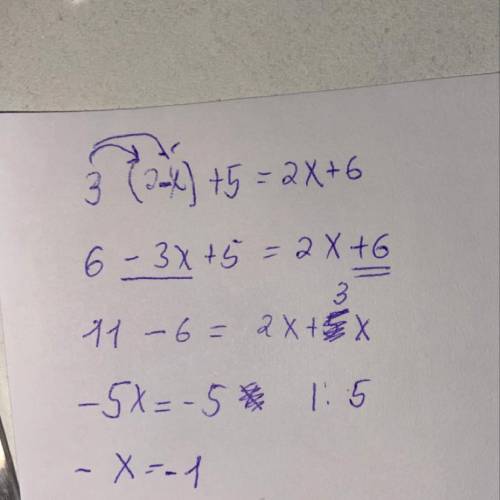 3 (2-x) +5 = 2x+6
6 - 3x +5 = 2x +6
11 - 6 = 2x + 3x
-5x = -5 |: 5
- x = -1